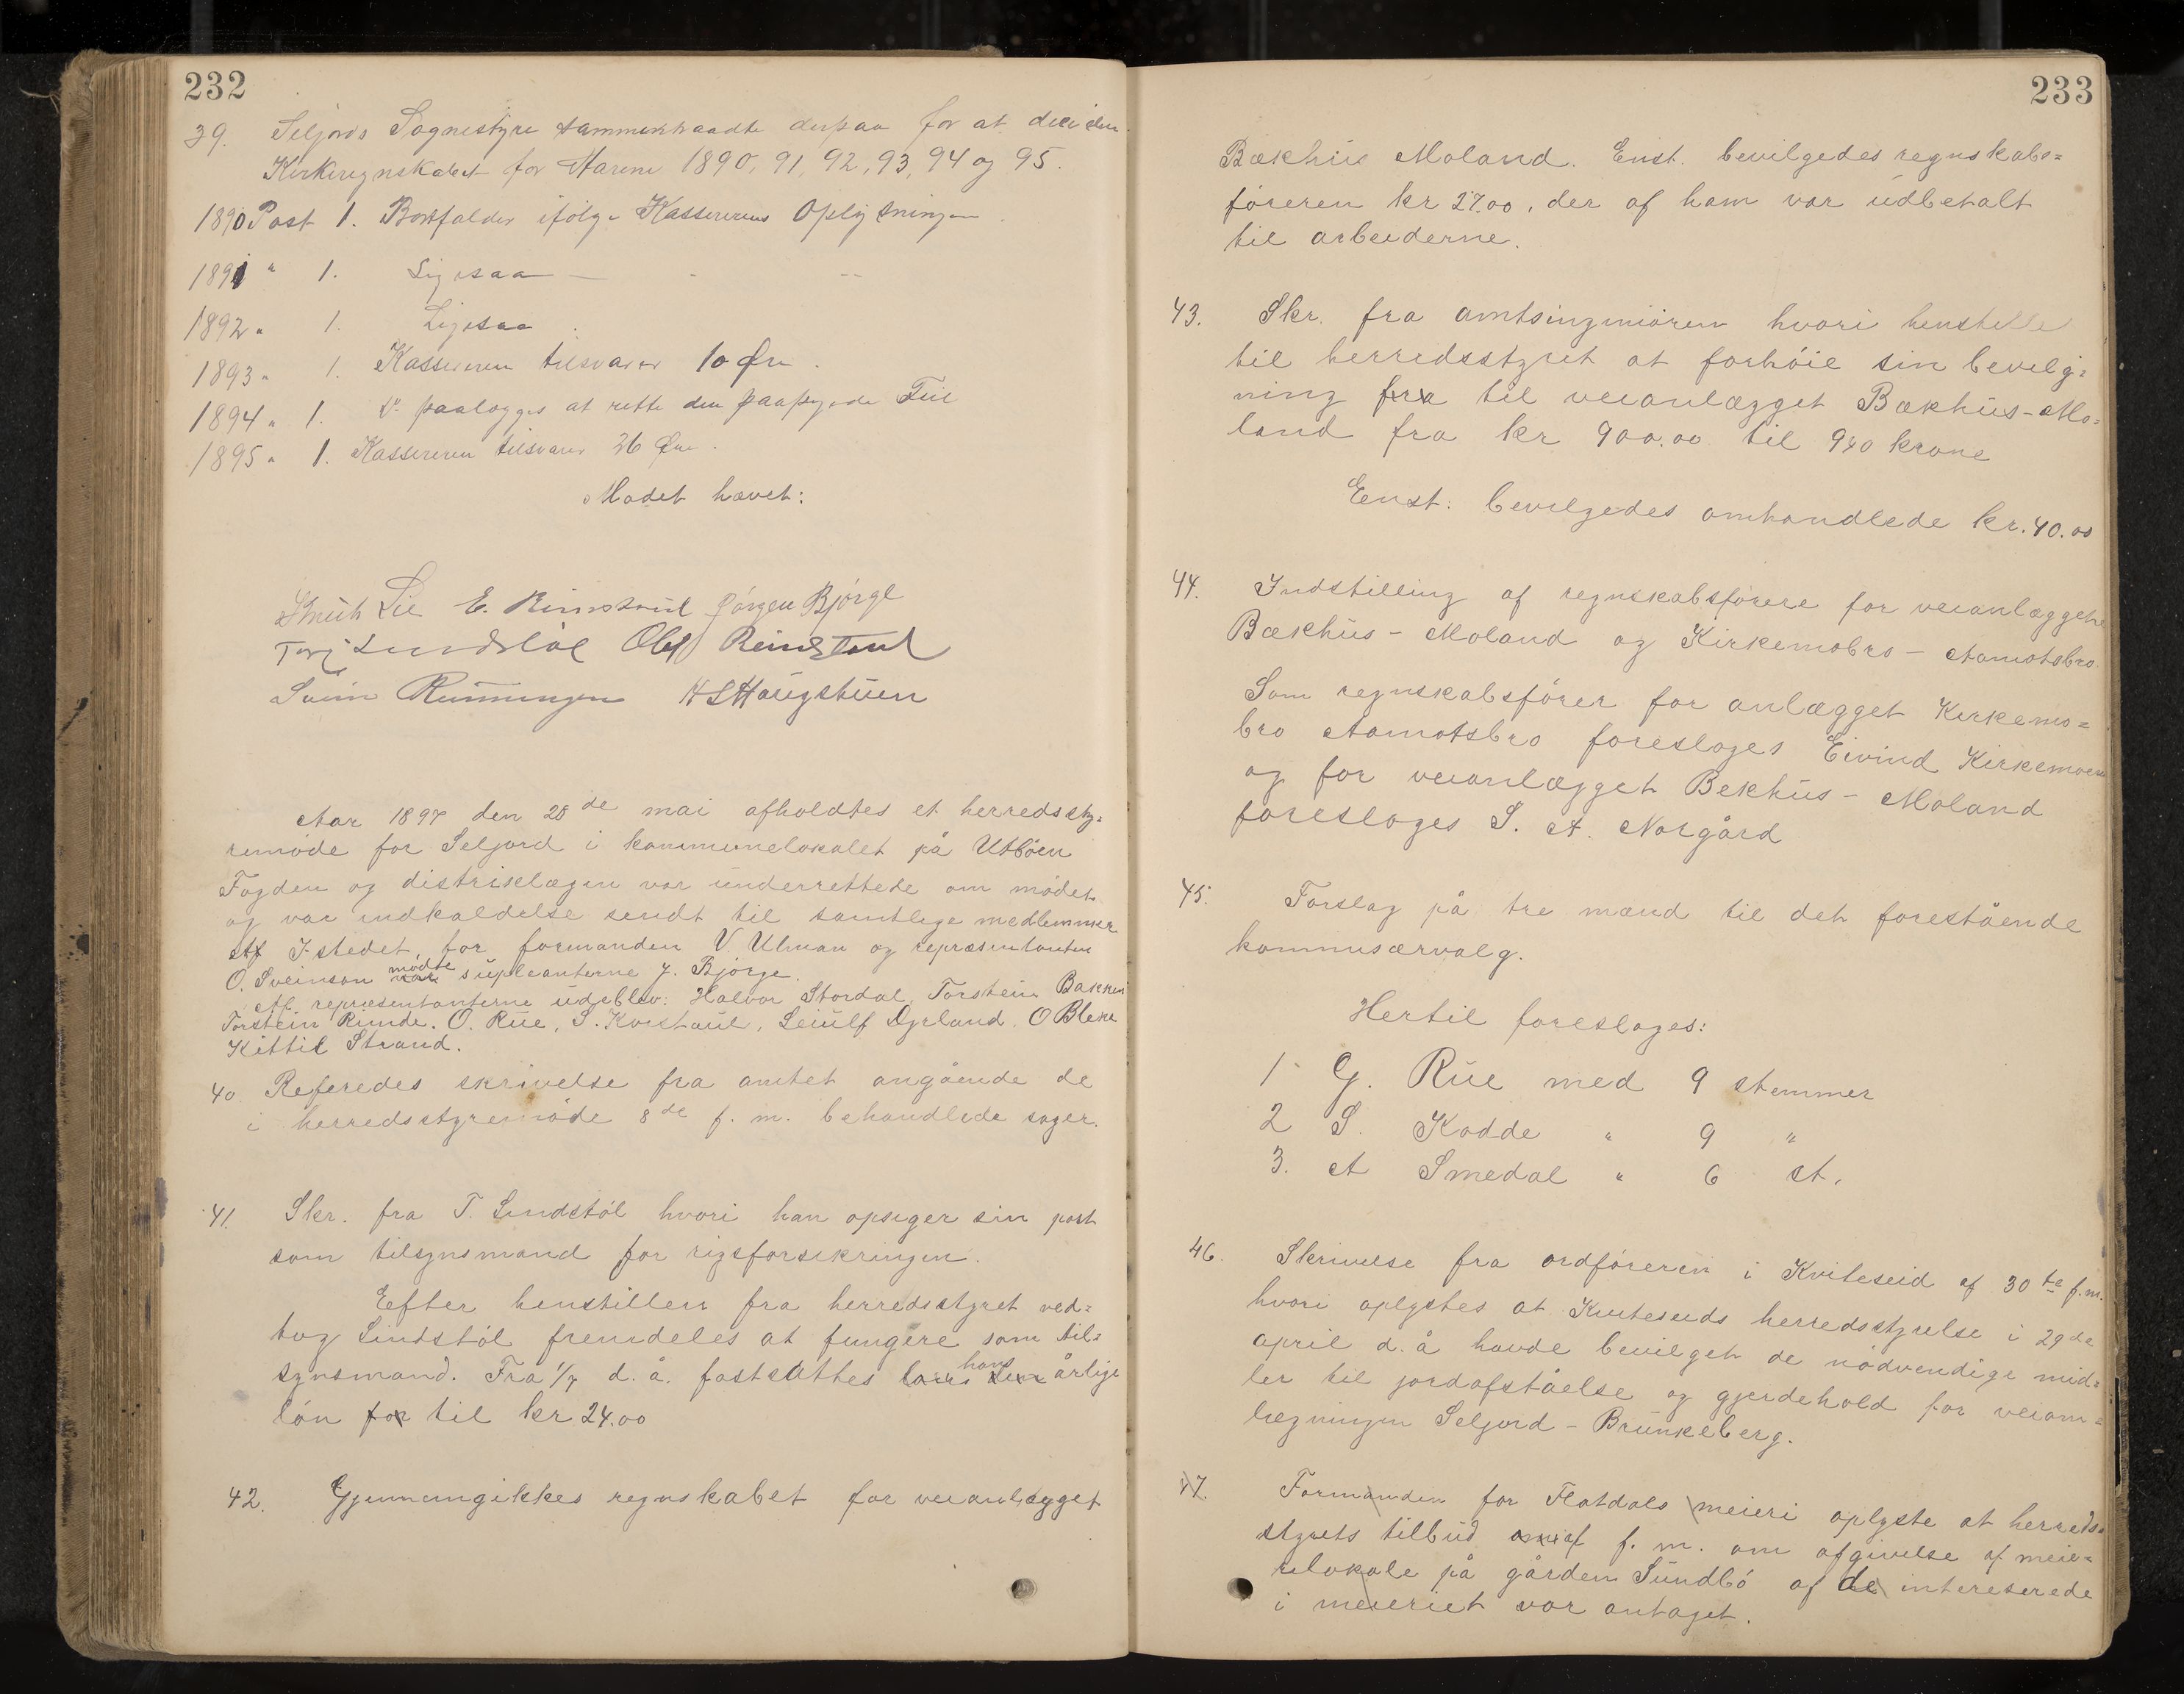 232
39. Seljords Sognestyre sammentraadte derpaa for at decidere
Kirkeregnskabet for Aarene 1890, 91, 92, 93, 94 og 95.
1890 Post 1. Bortfalder ifölge Kassererens Oplysninger
1891 " 1. Ligesaa — - --
1892 " 1. Ligesaa
1893 " 1. Kassereren tilsvarer 10 Øre.
1894 " 1. do paalægges at rette den paapegede Feil
1895 " 1. Kassereren tilsvarer 36 Øre.
Mödet hævet:
Lie E. Rimstoul Jörgen Björge
Torj Lundsböl Olaf Reimstoul
Svein Rumungen H S Haugstuen
Aar 1897 den 28de mai afholdtes et herredssty=
remöde for Seljord i kommunelokalet på Utböen
Fogden og distrikslægen var underrettede om mödet
og var indkaldelse sendt til samtlege medlemmer
Af Istedet for formanden V. Ulman og repræsentanten
O. Sveinson mödte supleanterne J. Björge.
Af repræsentanterne udeblev: Halvor Stordal, Torstein Bakken
Torstein Rinde. O. Rue, S. Kvistaul, Leiulf Dyrland. O Bleka
Kittil Strand.
40. Referedes skrivelse fra amtet angående de
i herredsstyremöde 8de f. m. behandlede sager.
41. Skr. fra T. Lindstöl hvori han opseger sin post
som tilsynsmand for rigsforsikringen.
Eefter henstillen fra herredsstyret ved=
tog Lindstöl fremdeles at fungere som til=
synsmand. Fra 1/7 d. å. fastsattes hans årlige
lön for til kr 24.00
42. Gjennemgikkes regnskabet for veianlægget
233
Bækhus Moland. Enst. bevilgedes regnskabs=
föreren kr 27.00, der af ham var udbetalt
til arbeiderne.
43. Skr. fra amtsingeniören hvori henstelles
til herredsstyret at forhöie sin bevilg=
ning fra til veianlægget Bækhus-Mo=
land fra kr 900.00 til 940 krone
Eenst: bevilgedes omhandlede kr. 40.00
44. Indstilling af regnskabsförere for veianlæggene
Bækhus - Moland og Kirkemobro - Aamotsbro
Som regnskabsförer for anlægget Kirkemo=
bro Aamotsbro foresloges Eivind Kirkemoen
og for veianlægget Bekhus - Moland
foresloges S. A. Norgård
45. Forslag på tre mænd til det forestående
kommisærvalg.
Hertil foresloges:
1 G. Rue med 9 stemmer
2 S. Kodde " 9 "
3. A Smedal " 6 st.
46. Skrivelse fra ordföreren i Kviteseid af 30te f.m.
hvori oplystes at Kviteseids herredsstyrelse i 29de
april d. å havde bevilget de nödvendige mid=
ler til jordafståelse og gjerdehold for veiom=
lægningen Seljord - Brunkeberg.
47. Formanden for Flatdals meieri oplyste at herreds=
styrets tilbud af f. m. om afgivelse af meie=
rilokale på gården Sundbö af de intereserede
i meieriet var antaget.